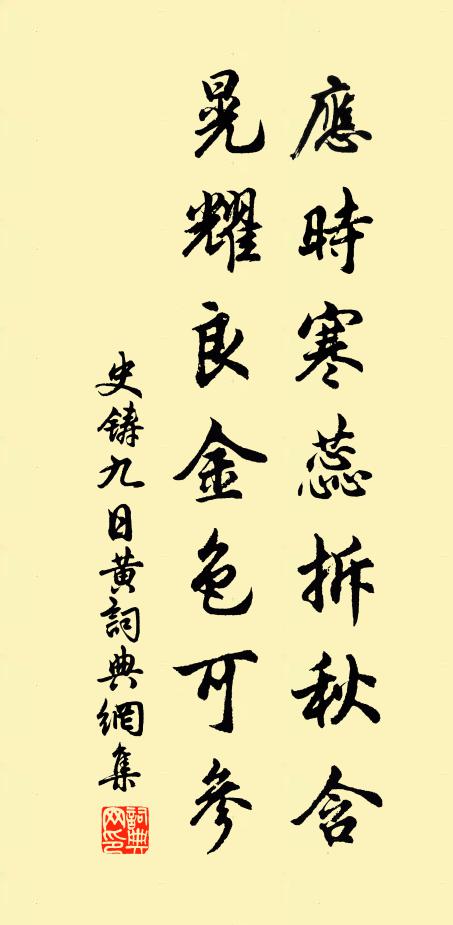 應時寒蕊拆秋含
晃耀良金色可參
史鑄九日黃詞典網集
詞典網印